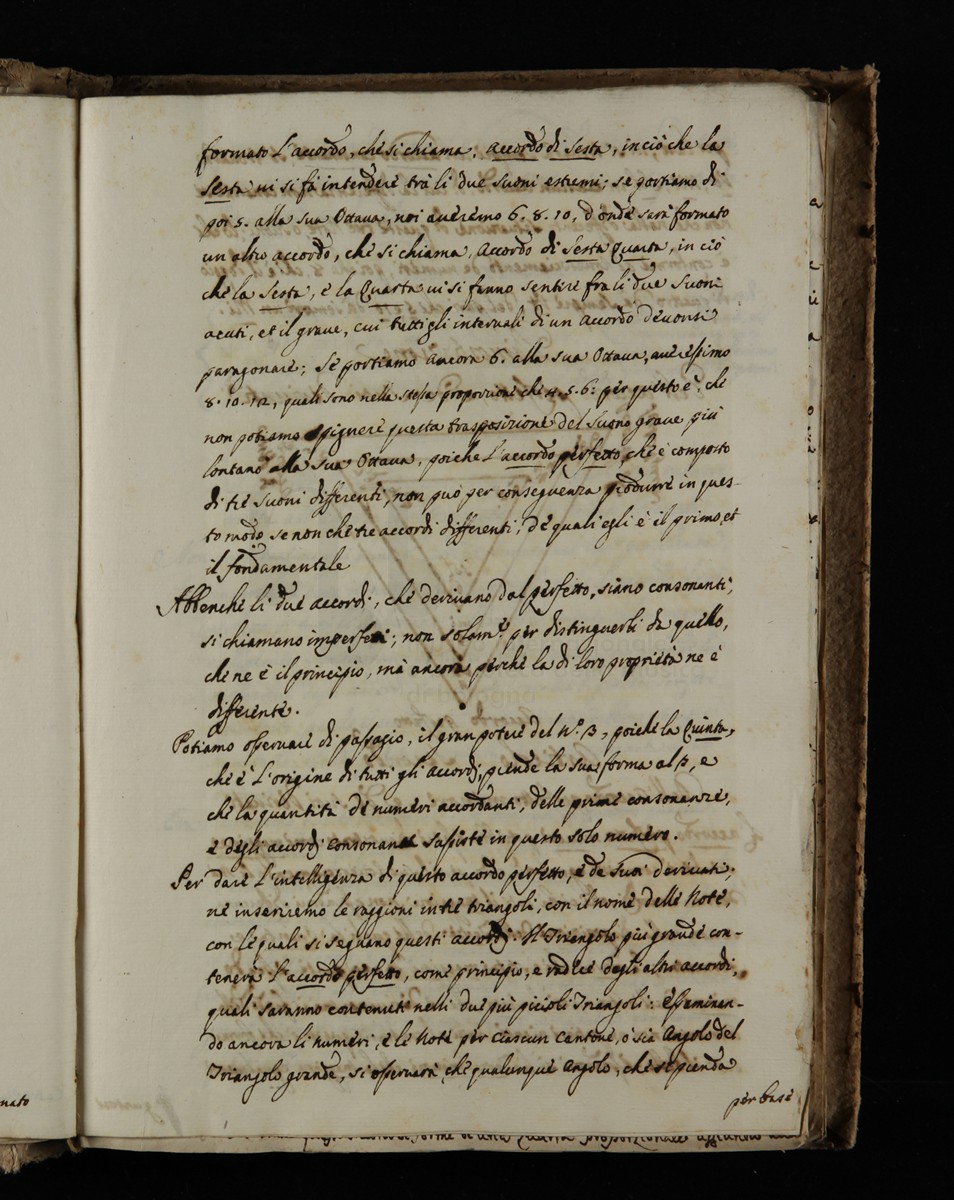 formato L'accordo, che si chiama, accordo di Sesta, in ciò che la
Sesta vi si fà intendere trà li due suoni estremi; se portiamo di
poi 5. alla sua Ottava, noi averemo 6. 8. 10, d'onde sarà formato
un altro accordo, che si chiama, Accordo di Sesta Quarta, in ciò
che la Sesta, e la Quarta vi si fanno sentire fra li due Suoni
acuti, et il grave, cui tutti gli intervali di un Accordo devonsi
paragonare; Se portiamo ancora 6. alla sua Ottava, averessimo
8. 10. 12, quali sono nella stessa proporzione che 4. 5. 6: per questo è, che
non potiamo spignere questa trasposizione del Suono grave più
lontano alla sua Ottava, poiche L'accordo perfetto, che è composto
di tre suoni differenti, non può per conseguenza produrre in ques-
to modo se non che tre accordi differenti, de quali egli è il primo, et
il fondamentale
Abbenche li due accordi, che derivano dal perfetto, siano consonanti,
si chiamano imperfetti; non solam.e per distinguerli da quello,
che ne è il principio, mà ancora perche la di loro proprietà ne è
differente.
Potiamo osservare di passagio, il gran potere del N.o 3, poiche la Quinta,
che è L'origine di tutti gli accordj, prende la sua forma al 3, e
che la quantità de numeri accordanti, delle prime consonanze,
e degli accordj consonanti sussiste in questo solo numero.
Per dare L'intelligenza di questo accordo perfetto, e de suoi derivati,
ne inseriremo le raggioni in tre triangoli, con il nome delle Note,
con le quali si segnano questi accordj. Il Triangolo più grande con-
tenerà L'accordo perfetto, come principio, e radice degli altri accordi,
quali saranno contenuti nelli due più piccioli Triangoli: Essaminan-
do ancora li numeri, e le Note per ciascun Cantone, ò sia Angolo del
Triangolo grande, si osservarà, che qualunque Angolo, che si prenda
per base
nato